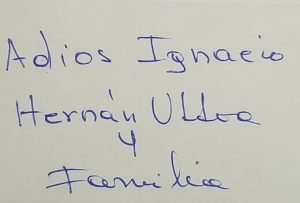 Adios Ignacio
Hernán Ulloa
y
Familia